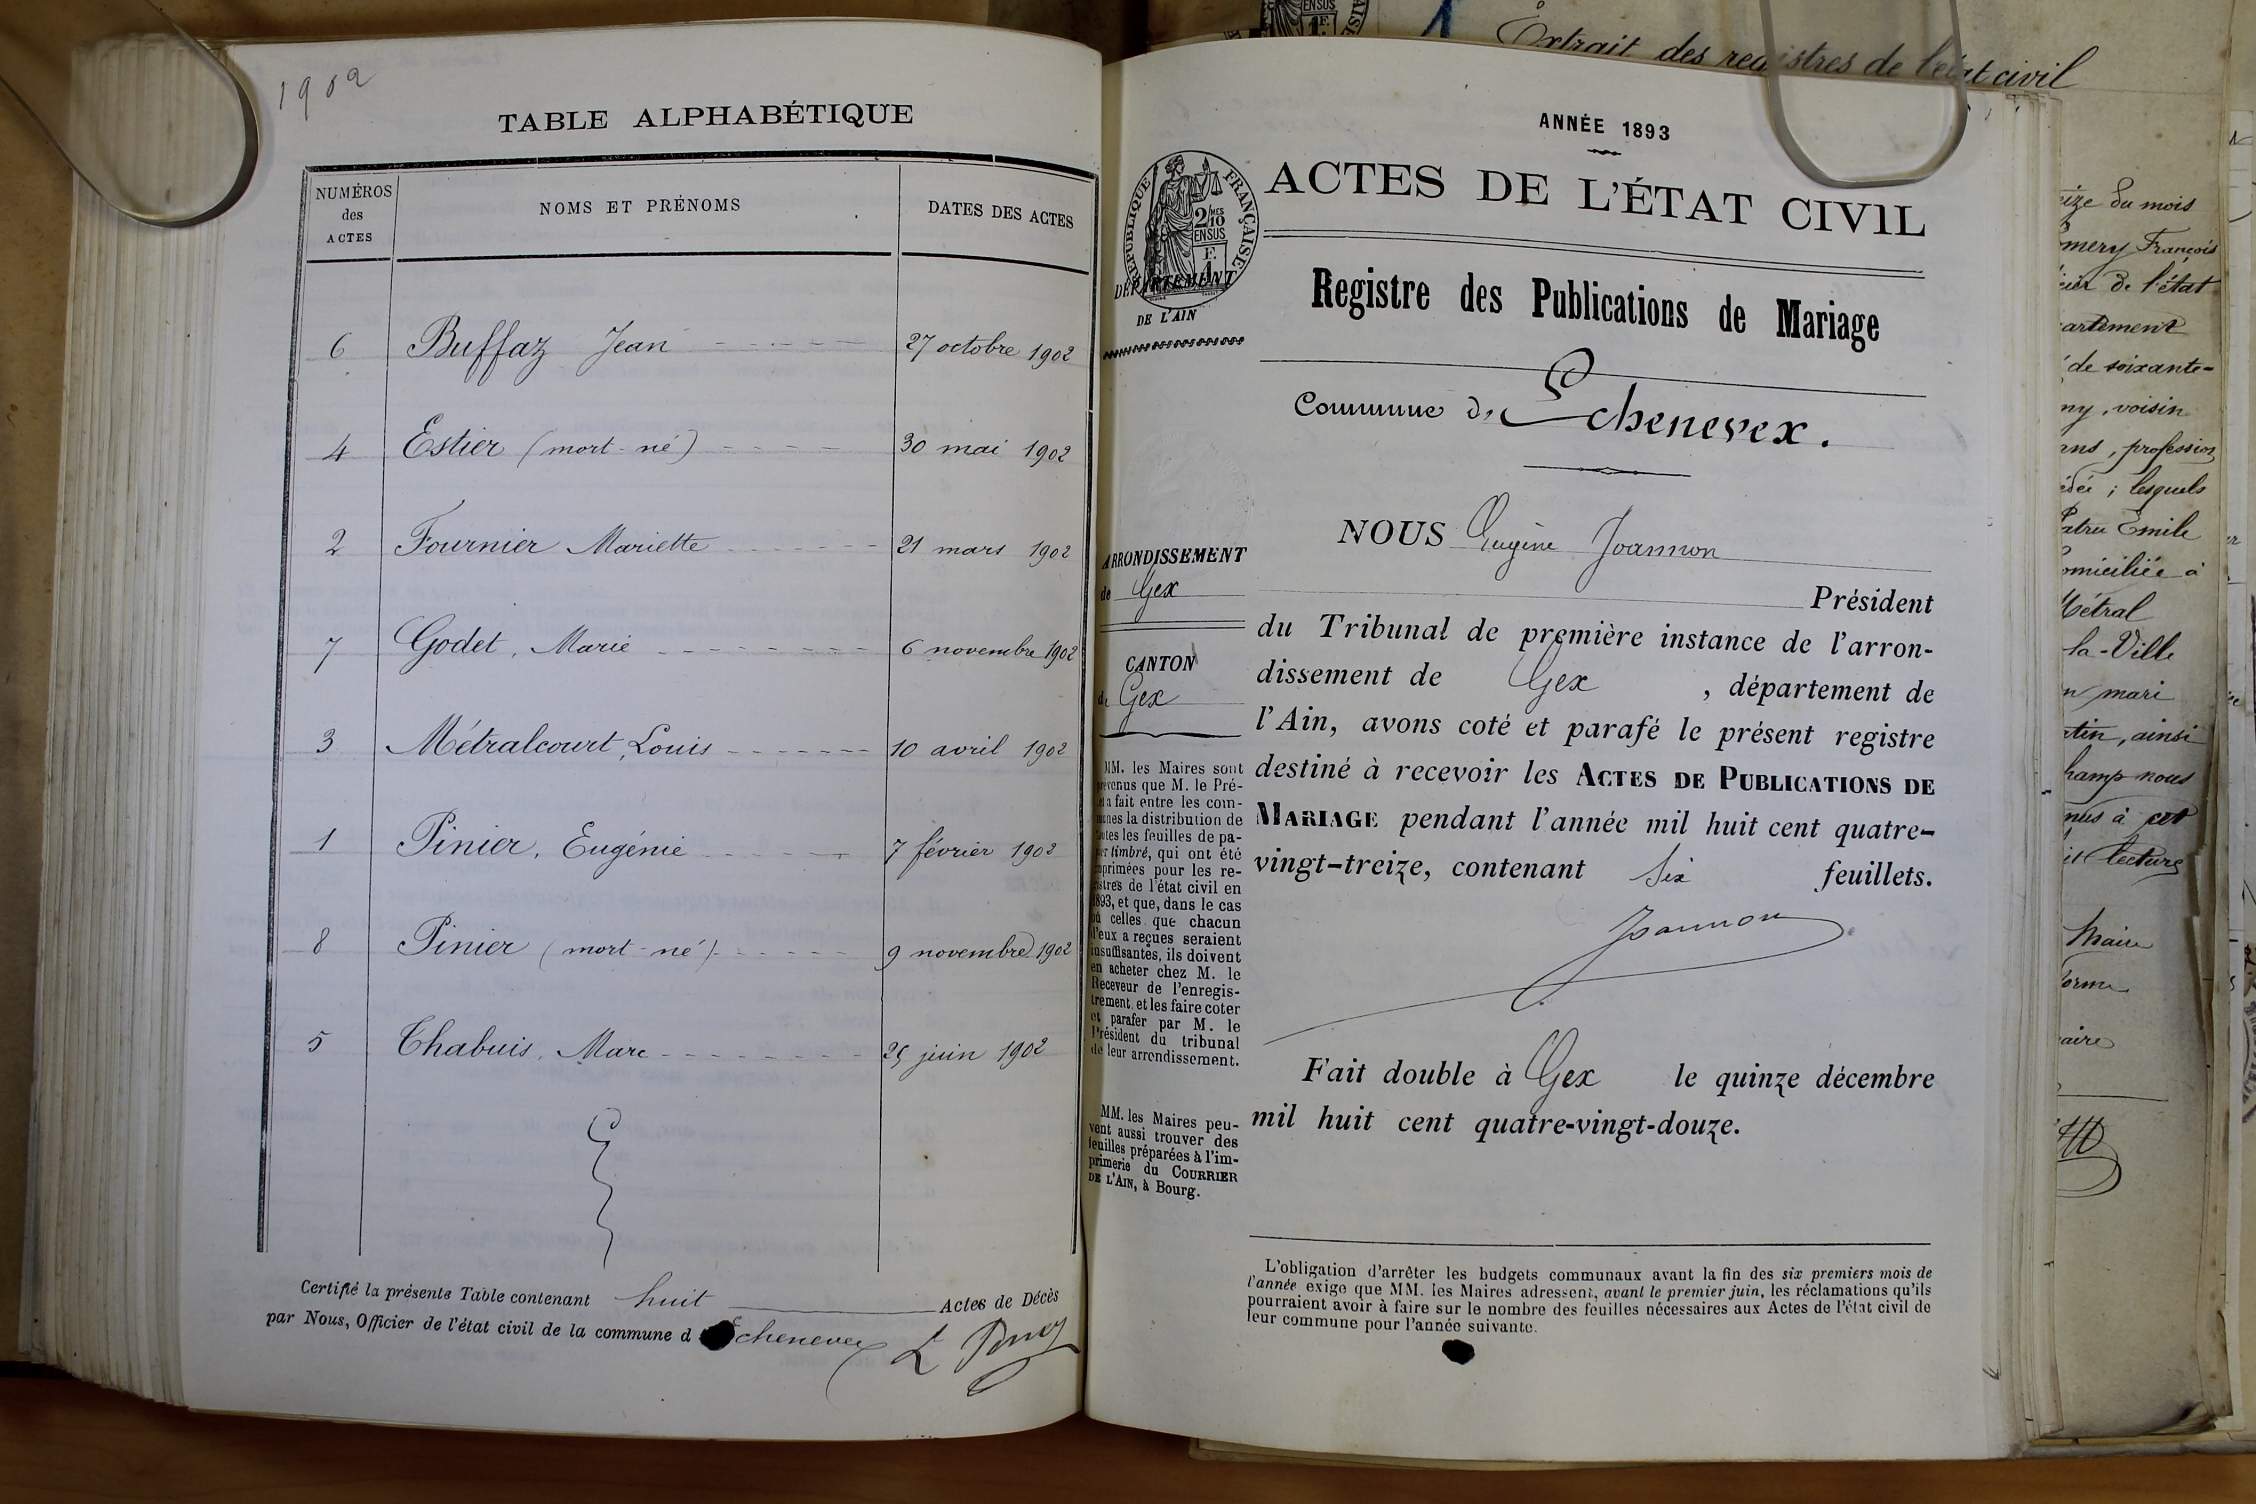 1902
TABLE ALPHABÉTIQUE
NUMÉROS
des
ACTES
NOMS ET PRÉNOMS
DATES DES ACTES
6 Buffaz Jean 27 octobre 1902
4 Estier (mort-né) 30 mai 1902
2 Fournier Mariette 21 mars 1902
7 Godet, Marie 6 novembre 1902
3 Métralcourt, Louis 10 avril 1902
1 Pinier, Eugénie 7 février 1902
8 Pinier (mort-né) 9 novembre 1902
5 Thabuis, Marc 25 juin 1902
Certifié la présente Table contenant huit Actes de Décès
par Nous, Officier de l'état civil de la commune d'Echenevex
ANNÉE 1893
ACTES DE L'ÉTAT CIVIL
RÉPUBLIQUE FRANÇAISE
2/10
EN SUS
1 F.
DÉPARTEMENT
DE L'AIN
Registre des Publications de Mariage
Commune d'Echenevex.
ARRONDISSEMENT
de Gex
CANTON
de Gex
MM. les Maires sont
prévenus que M. le Pré-
fet a fait entre les com-
munes la distribution de
toutes les feuilles de pa-
pier timbré, qui ont été
imprimées pour les re-
gistres de l'état civil en
1893, et que, dans le cas
où celles que chacun
d'eux a reçues seraient
insuffisantes, ils doivent
en acheter chez M. le
Receveur de l'enregis-
trement, et les faire coter
et parafer par M. le
Président du tribunal
de leur arrondissement.
MM. les Maires peu-
vent aussi trouver des
feuilles préparées à l'im-
primerie du COURRIER
DE L'AIN, à Bourg.
NOUS Eugène Joannon
Président
du Tribunal de première instance de l'arron-
dissement de Gex , département de
l'Ain, avons coté et parafé le présent registre
destiné à recevoir les ACTES DE PUBLICATIONS DE
MARIAGE pendant l'année mil huit cent quatre-
vingt-treize, contenant Six feuillets.
Joannon
Fait double à Gex le quinze décembre
mil huit cent quatre-vingt-douze.
L'obligation d'arrêter les budgets communaux avant la fin des six premiers mois de
l'année exige que MM. les Maires adressent, avant le premier juin, les réclamations qu'ils
pourraient avoir à faire sur le nombre des feuilles nécessaires aux Actes de l'état civil de
leur commune pour l'année suivante.
Extrait des registres de l'état civil
du mois
François
de l'état
de soixante-
voisin
profession
lesquels
Emile
domiciliée à
Métral
la-Ville
mari
ainsi
nous
lecture
Maire